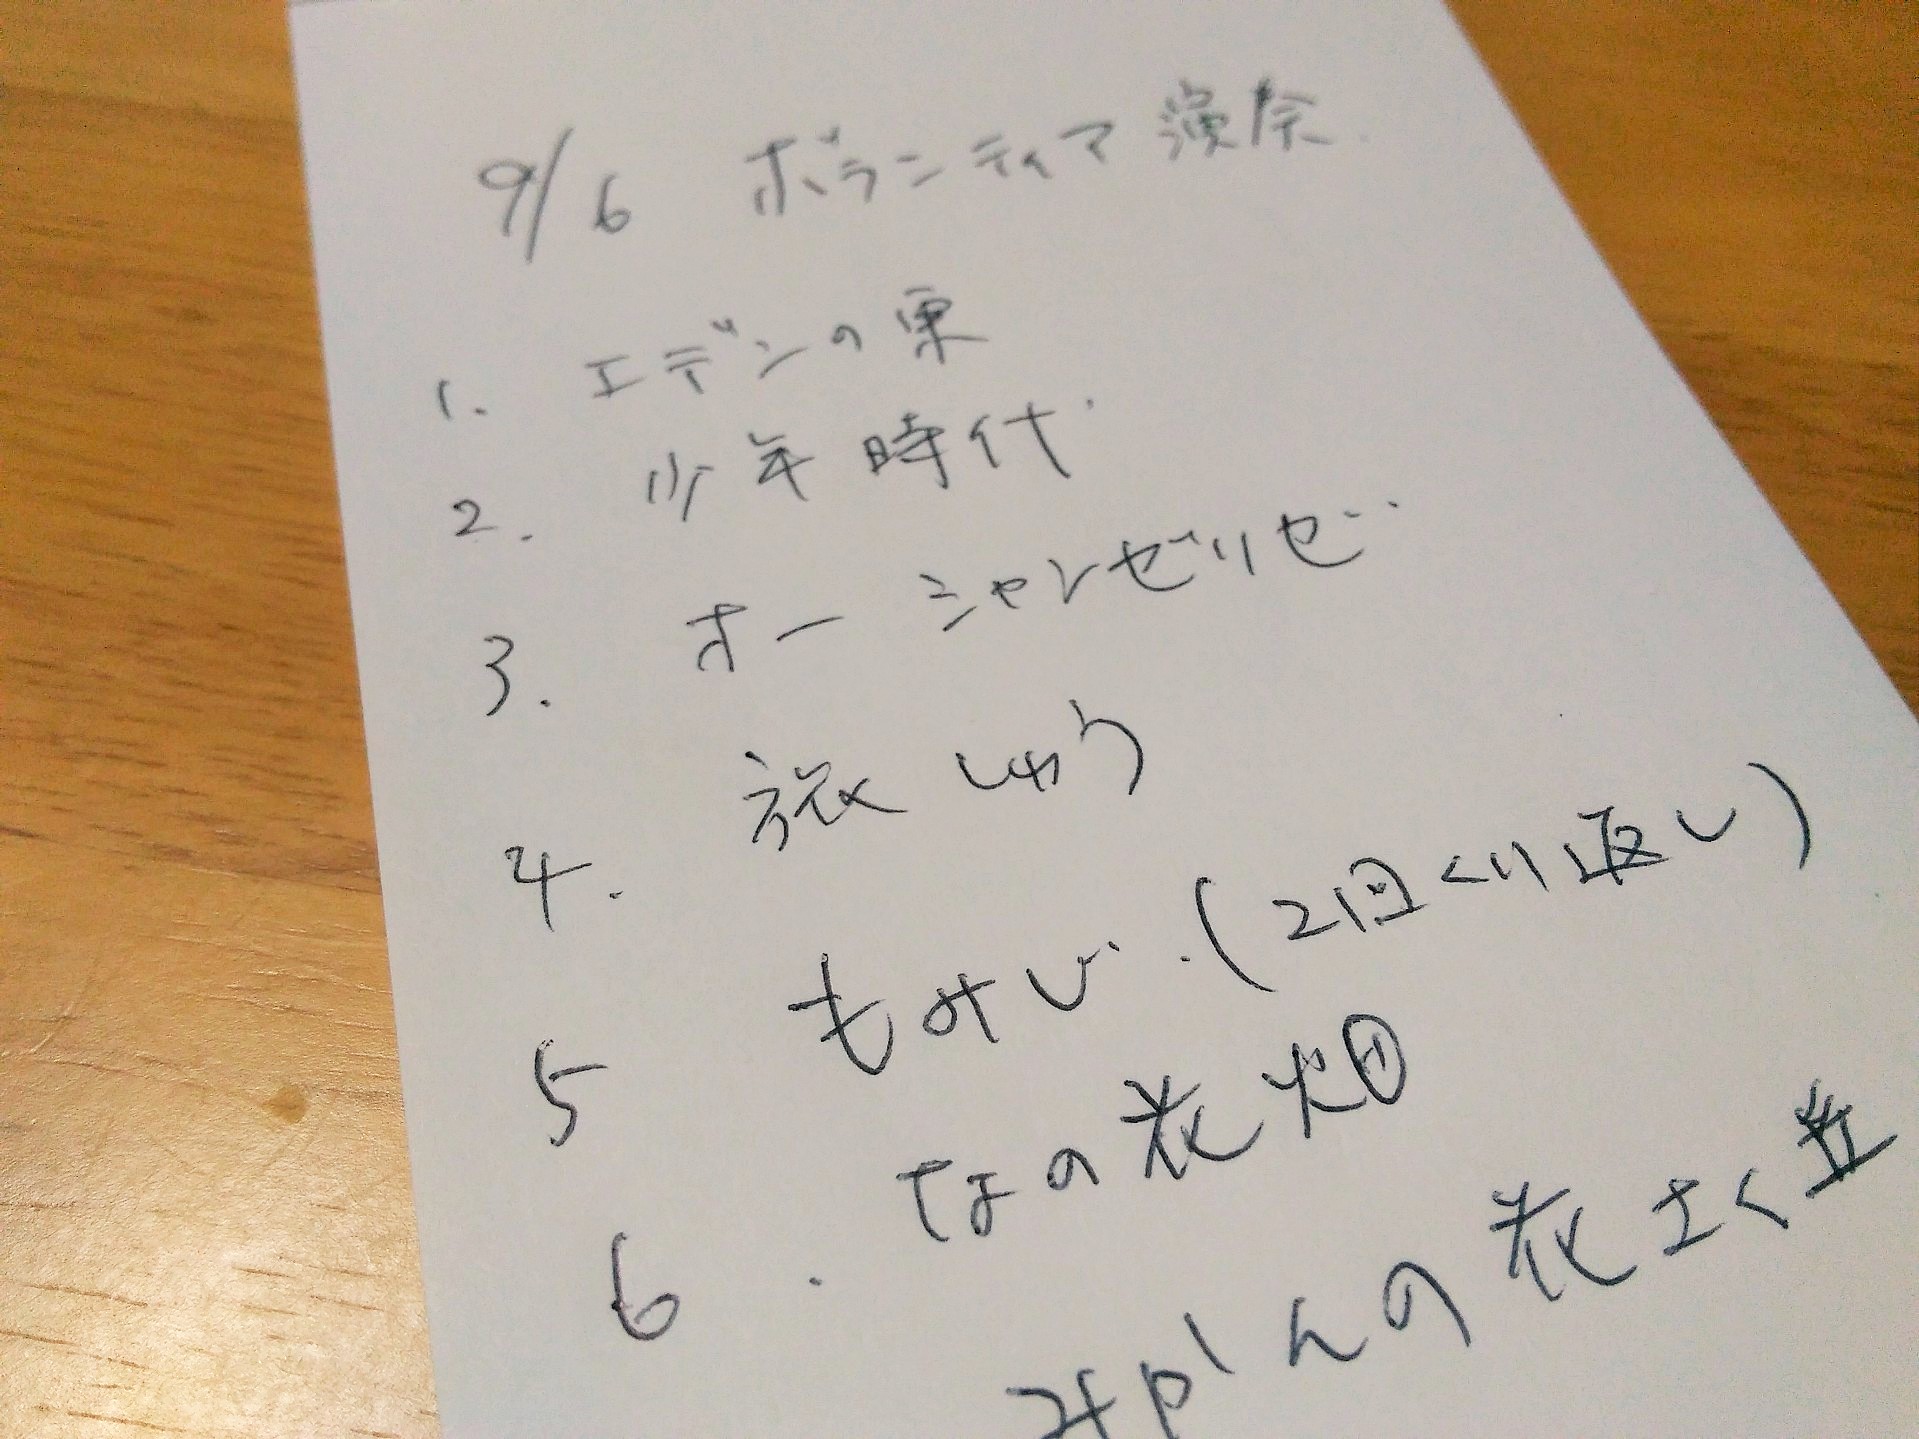 9/6 ボランティア演奏
1. エデンの東
2. 少年時代
3. オーシャンゼリゼ
4. 旅しゅう
5 もみじ.(2回くり返し)
6. なの花畑
みかんの花さく丘